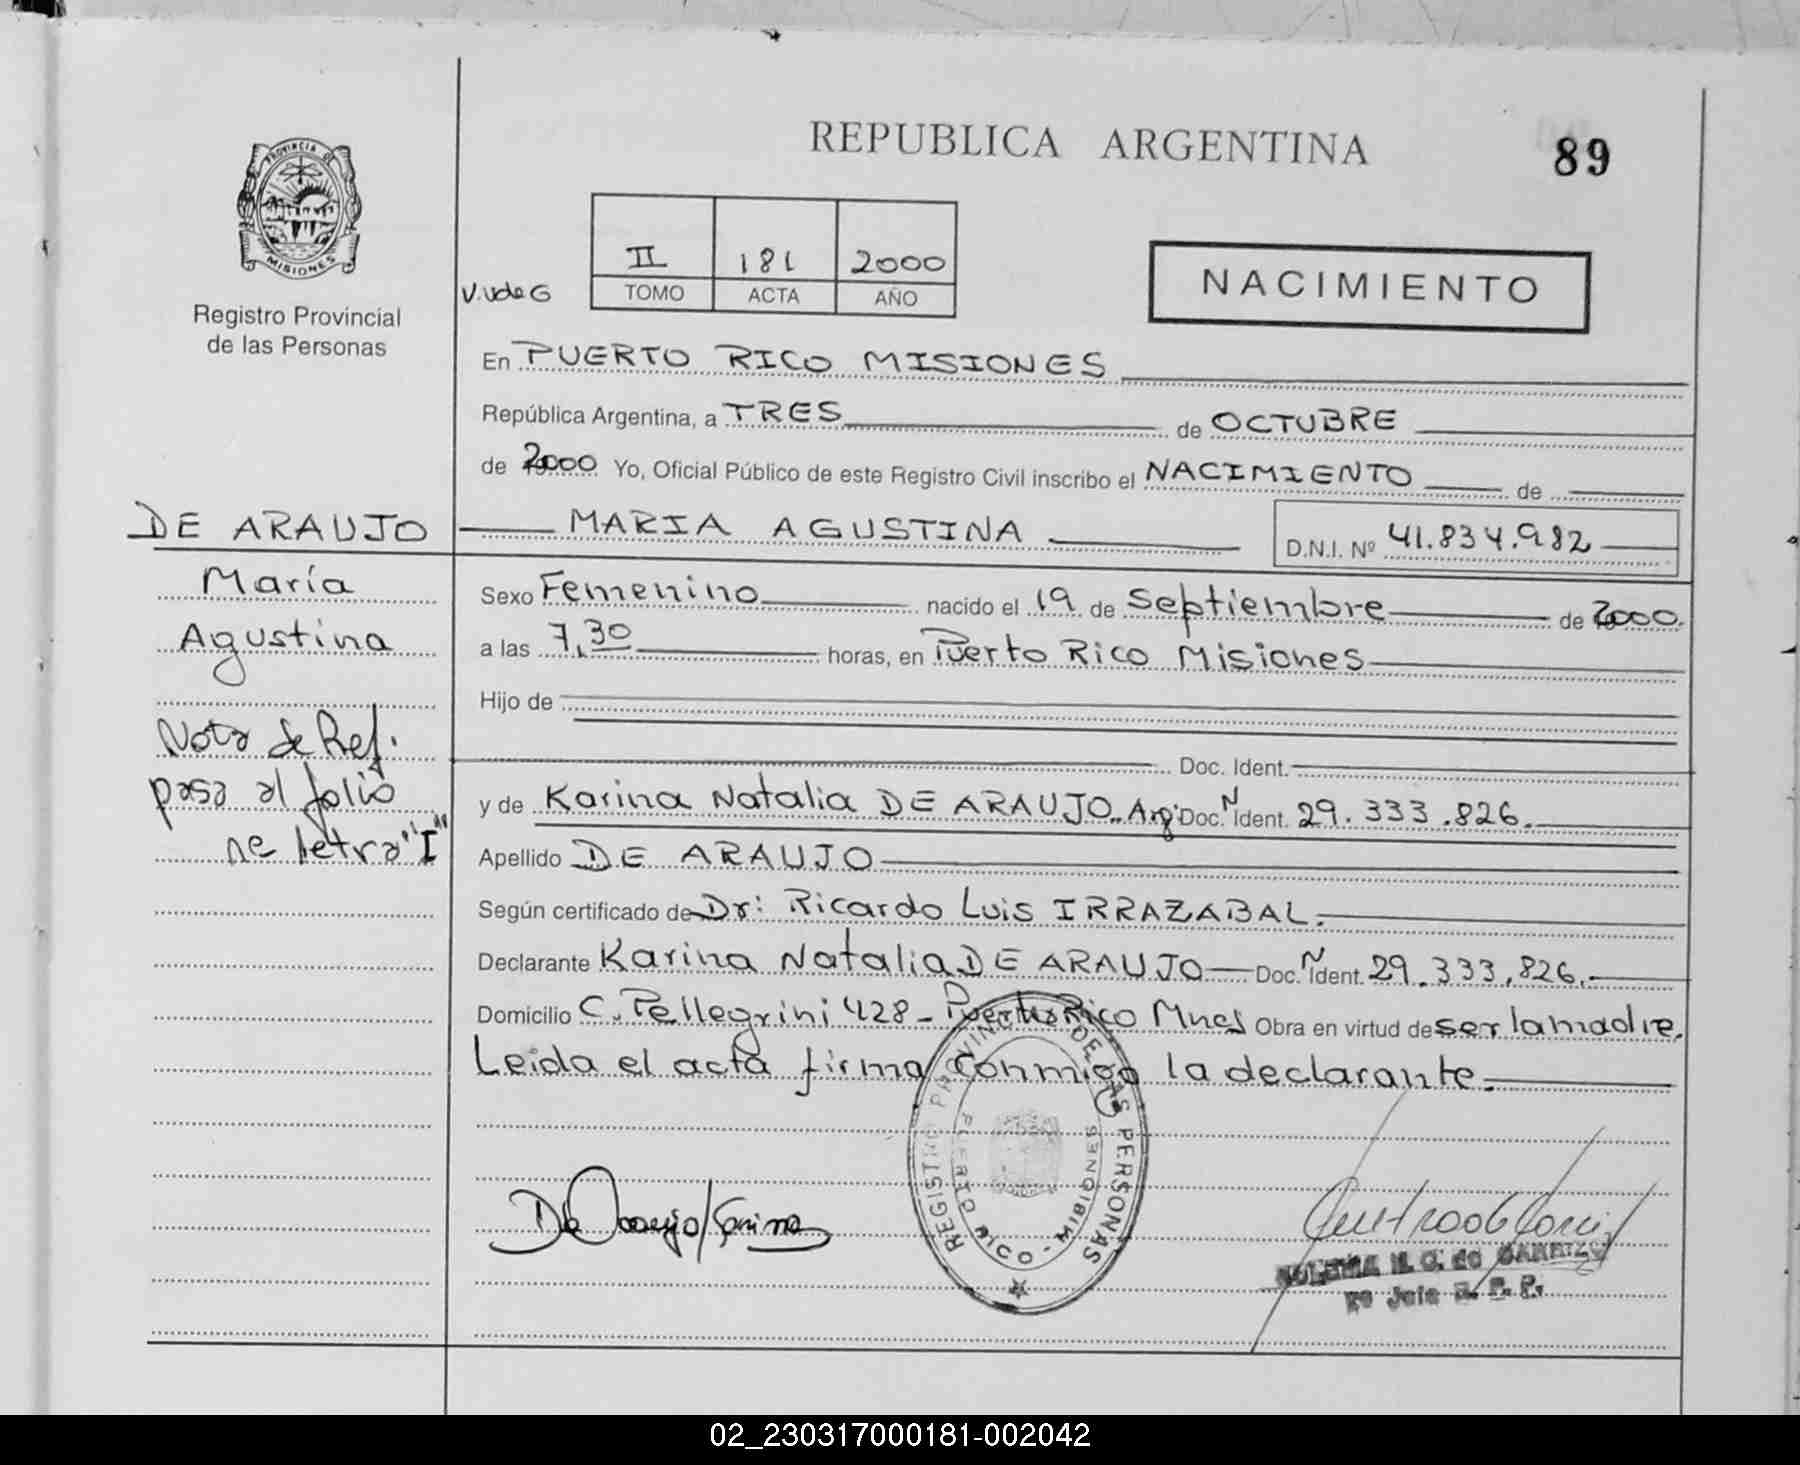 REPUBLICA ARGENTINA
89
PROVINCIA DE
MISIONES
Registro Provincial
de las Personas
V.UdeG
II 181 2000
TOMO ACTA AÑO
NACIMIENTO
En PUERTO RICO MISIONES
República Argentina, a TRES de OCTUBRE
de 2000 Yo, Oficial Público de este Registro Civil inscribo el NACIMIENTO de
DE ARAUJO MARIA AGUSTINA D.N.I. Nº 41.834.982
María
Agustina
Nota de Ref.
pasa al folio
ne letra "I"
Sexo Femenino nacido el 19 de Septiembre de 2000.
a las 7,30 horas, en Puerto Rico Misiones
Hijo de
Doc. Ident.
y de Karina Natalia DE ARAUJO.. Arg. Doc. N Ident. 29.333.826.
Apellido DE ARAUJO
Según certificado de Dr: Ricardo Luis IRRAZABAL.
Declarante Karina Natalia DE ARAUJO Doc. N Ident. 29.333.826.
Domicilio C. Pellegrini 428 - Puerto Rico Mnes Obra en virtud de ser la madre.
Leida el acta firma conmigo la declarante.
REGISTRO PROVINCIAL DE LAS PERSONAS
PUERTO RICO - MISIONES
De Araujo Karina
M. C. de
Jefe R. P. P.
02_230317000181-002042